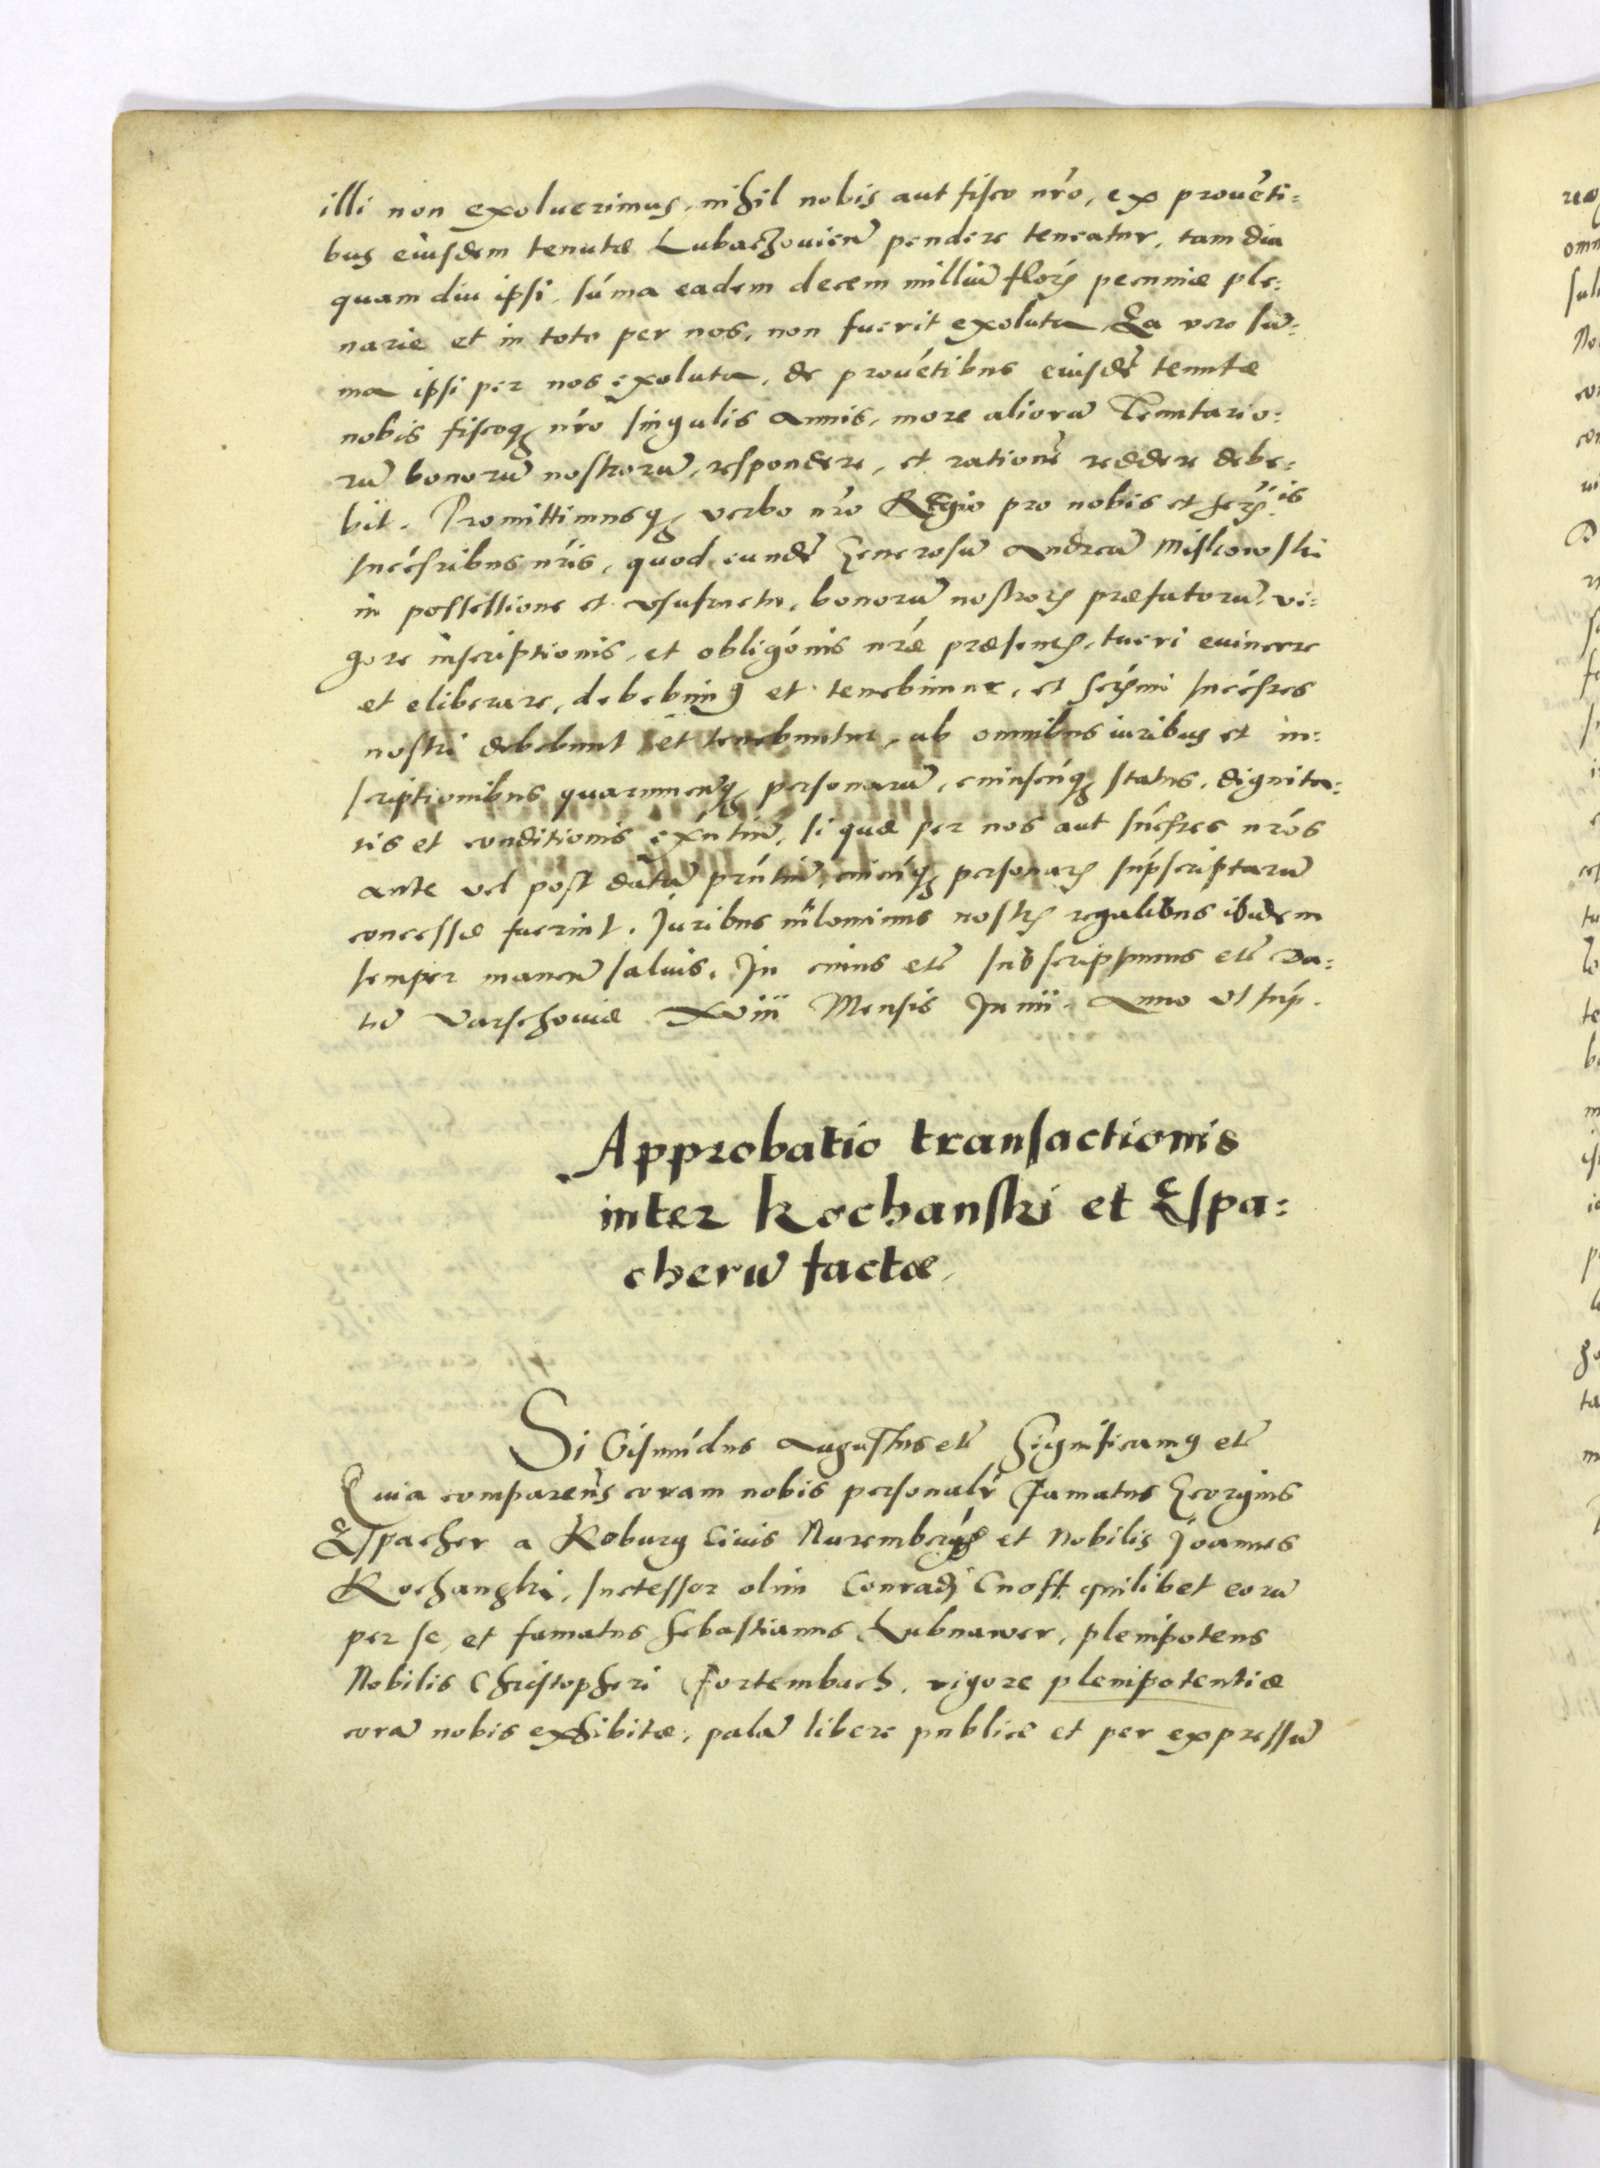 illi non exoluerimus, nihil nobis aut fisco nr̃o, ex prouẽti:
bus eiusdem tenutæ Lubaczouien̄ pendere teneatur, tam diu
quam diu ipsi, sũma eadem decem milliū floꝝ pecuniæ ple:
narie et in toto per nos, non fuerit exoluta. Ea vero sū:
ma ipsi per nos exoluta, de prouẽtibus eiusdē tenutæ
nobis fiscoqꝫ nr̃o singulis Annis, more aliorū Tenutario:
rū bonorū nostrorū, respondere, et rationē reddere debe:
bit. Promittimusqꝫ verbo nr̃o Regio pro nobis et Serᵐⁱˢ
succesribus nr̃is, quod eundē Generosū Andreā Miskowski
in possessione et vsufructu, bonorū nostroꝝ præfatorū, vi:
gore inscriptionis, et obligõnis nr̃æ præsentꝭ, tueri euincere
et eliberare, debebimꝰ et tenebimur, et Serᵐⁱ succẽsres
nostri debebunt et tenebuntur, ab omnibus iuribus et in:
scriptionibus quarumcunqꝫ personarū, cuiuscũqꝫ status, dignita:
tis et conditionis exñtiū, si quæ per nos aut succẽsres nr̃os
ante vel post datū pñtiū, cuicũqꝫ personaꝝ supscriptarū
concessæ fuerint. Juribus nilominus nostrꝭ regalibus ibidem
semper manen̄ saluis. In cuius etc̄ subscripsimus etc̄ Da:
tū Varschouiæ xviii Mensis Junii. Anno vt sup̃.
Approbatio transactionis
inter Kochanski et Espa:
cherū factæ.
Sigismũdus Augustus etc̄ Significamꝰ etc̄
Quia compareñs coram nobis personalr̃ Famatus Georgius
Espacher a Koburg Ciuis Nurembergeñ et Nobilis Joannes
Kochanski, successor olim Conradi Cnoft quilibet eorū
per se, et famatus Sebastianus Lubnawer, plenipotens
Nobilis Christopheri Fortembach, vigore plenipotentiæ
corā nobis exhibitæ, palā libere publice et per expressū